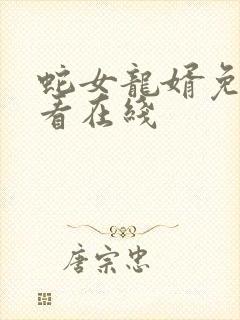 蛇女龍婿免
看在綫
唐宗忠